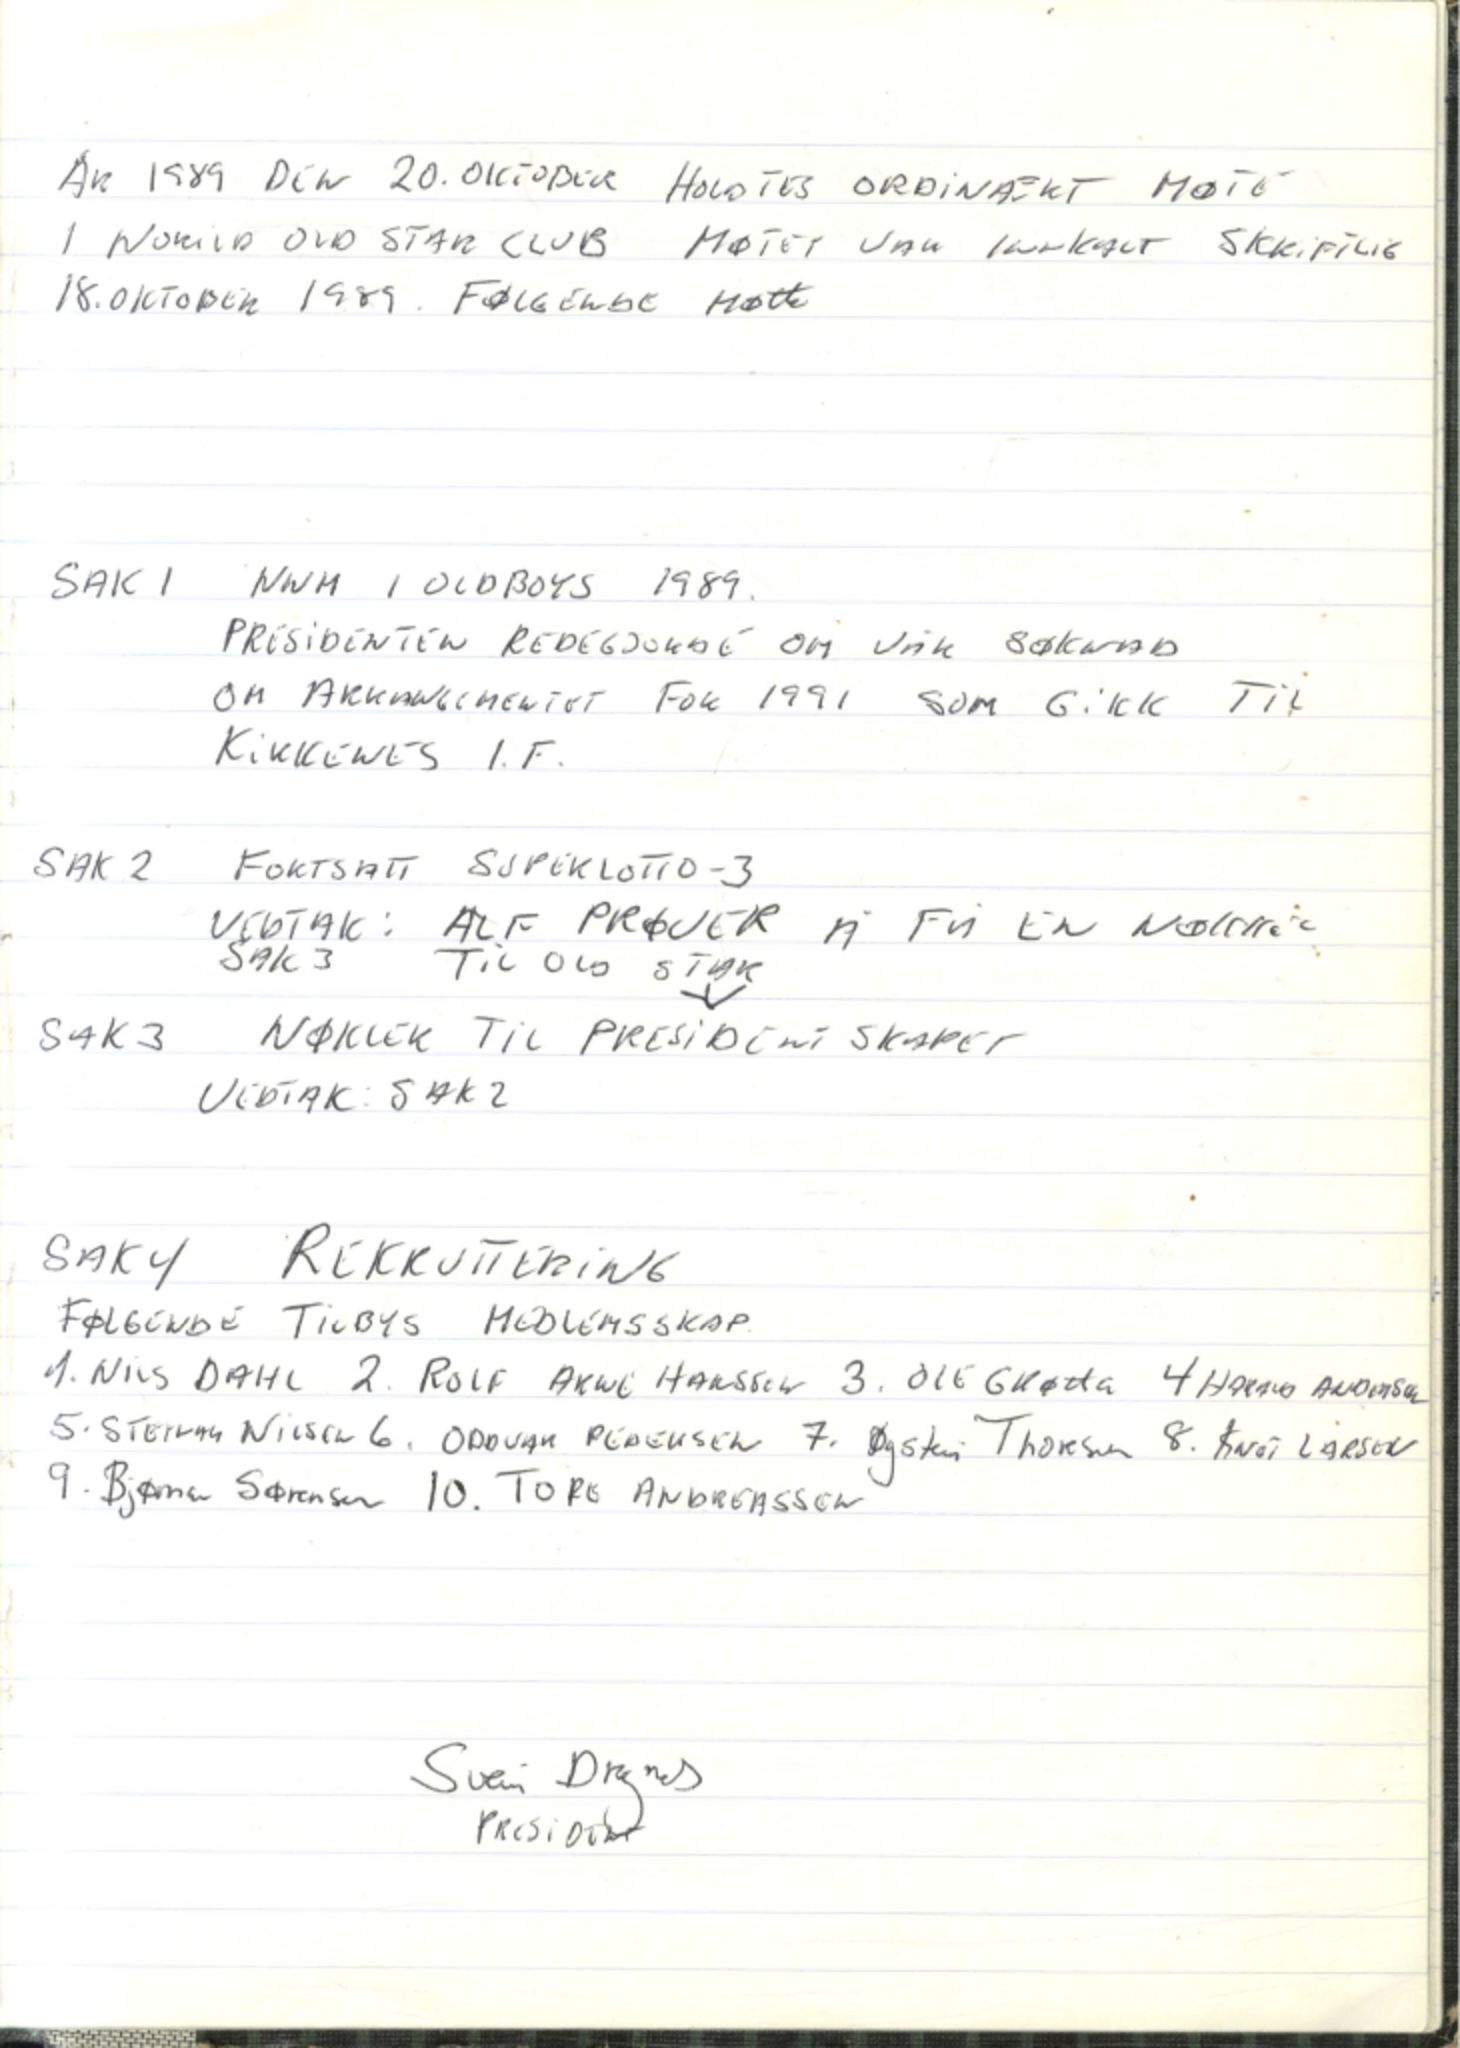 ÅR 1989 DEN 20. OKTOBER HOLDTES ORDINÆRT MØTE
I NORILD OLD STAR CLUB MØTET VAR INNKALT SKRIFTLIG
18. OKTOBER 1989. FØLGENDE MØTTE
SAK 1 NNM I OLDBOYS 1989.
PRESIDENTEN REDEGJORDE OM VÅR SØKNAD
OM ARRANGEMENTET FOR 1991 SOM GIKK TIL
KIRKENES I.F.
SAK 2 FORTSATT SUPERLOTTO-3
VEDTAK: ALF PRØVER Å FÅ EN
SAK 3 TIL OLD STAR
SAK 3 NØKLER TIL PRESIDENTSKAPET
VEDTAK: SAK 2
SAK 4 REKRUTTERING
FØLGENDE TILBYS MEDLEMSSKAP.
1. NILS DAHL 2. ROLF ARNE HANSSEN 3. OLE GRØTTA 4 HARALD ANDERSEN
5. STEINAR NILSEN 6. ODDVAR PEDERSEN 7. Øystein Thorsen 8. KNUT LARSEN
9. Bjørnar Sørensen 10. TORE ANDREASSEN
Svein Dragnes
PRESIDENT